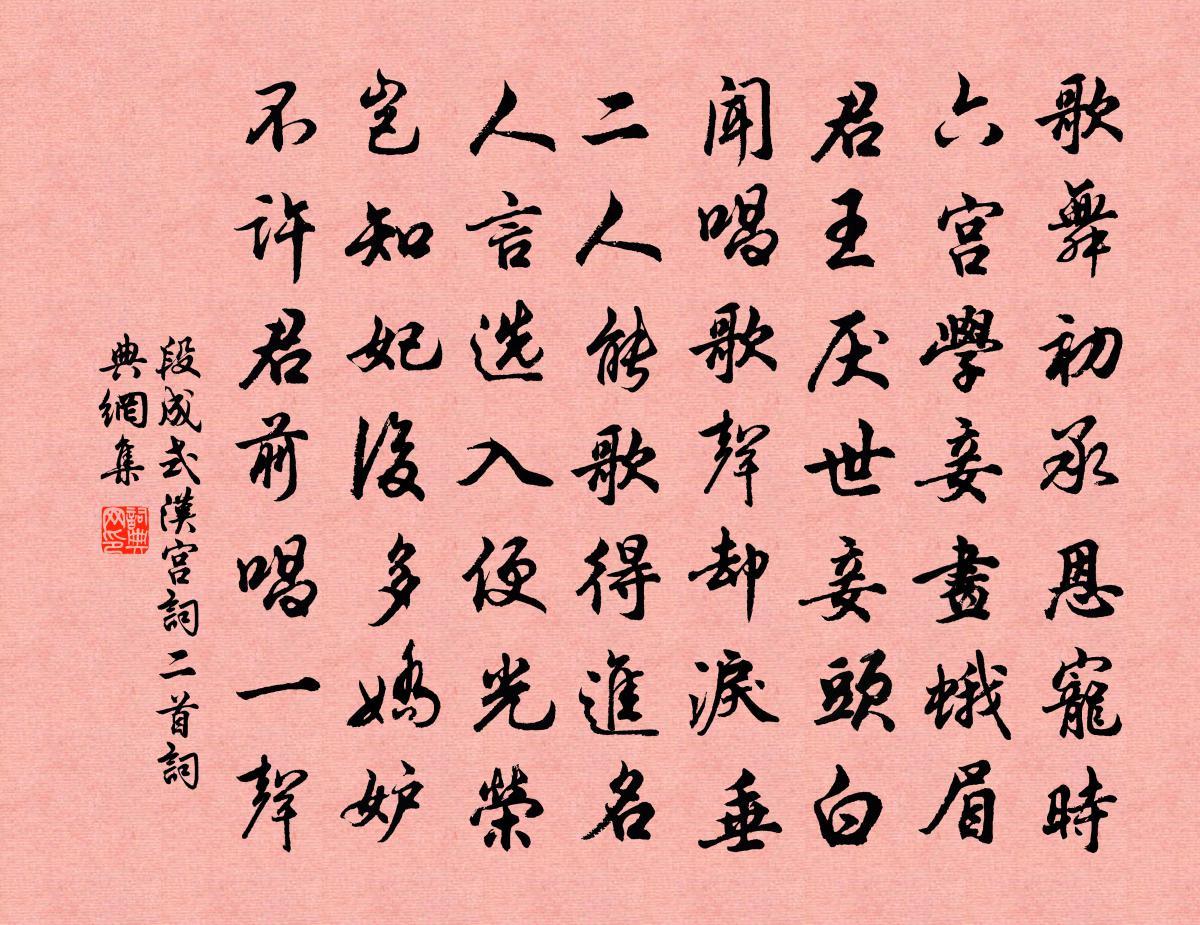 歌舞初承恩寵時
六宮學妾畫蛾眉
君王厌世妾頭白
聞唱歌聲却淚垂
二人能歌得進名
人言选入便光榮
岂知妃後多嬌妒
不許君前唱一聲
段成式漢宮詞二首詞
典網集
詞典
网印